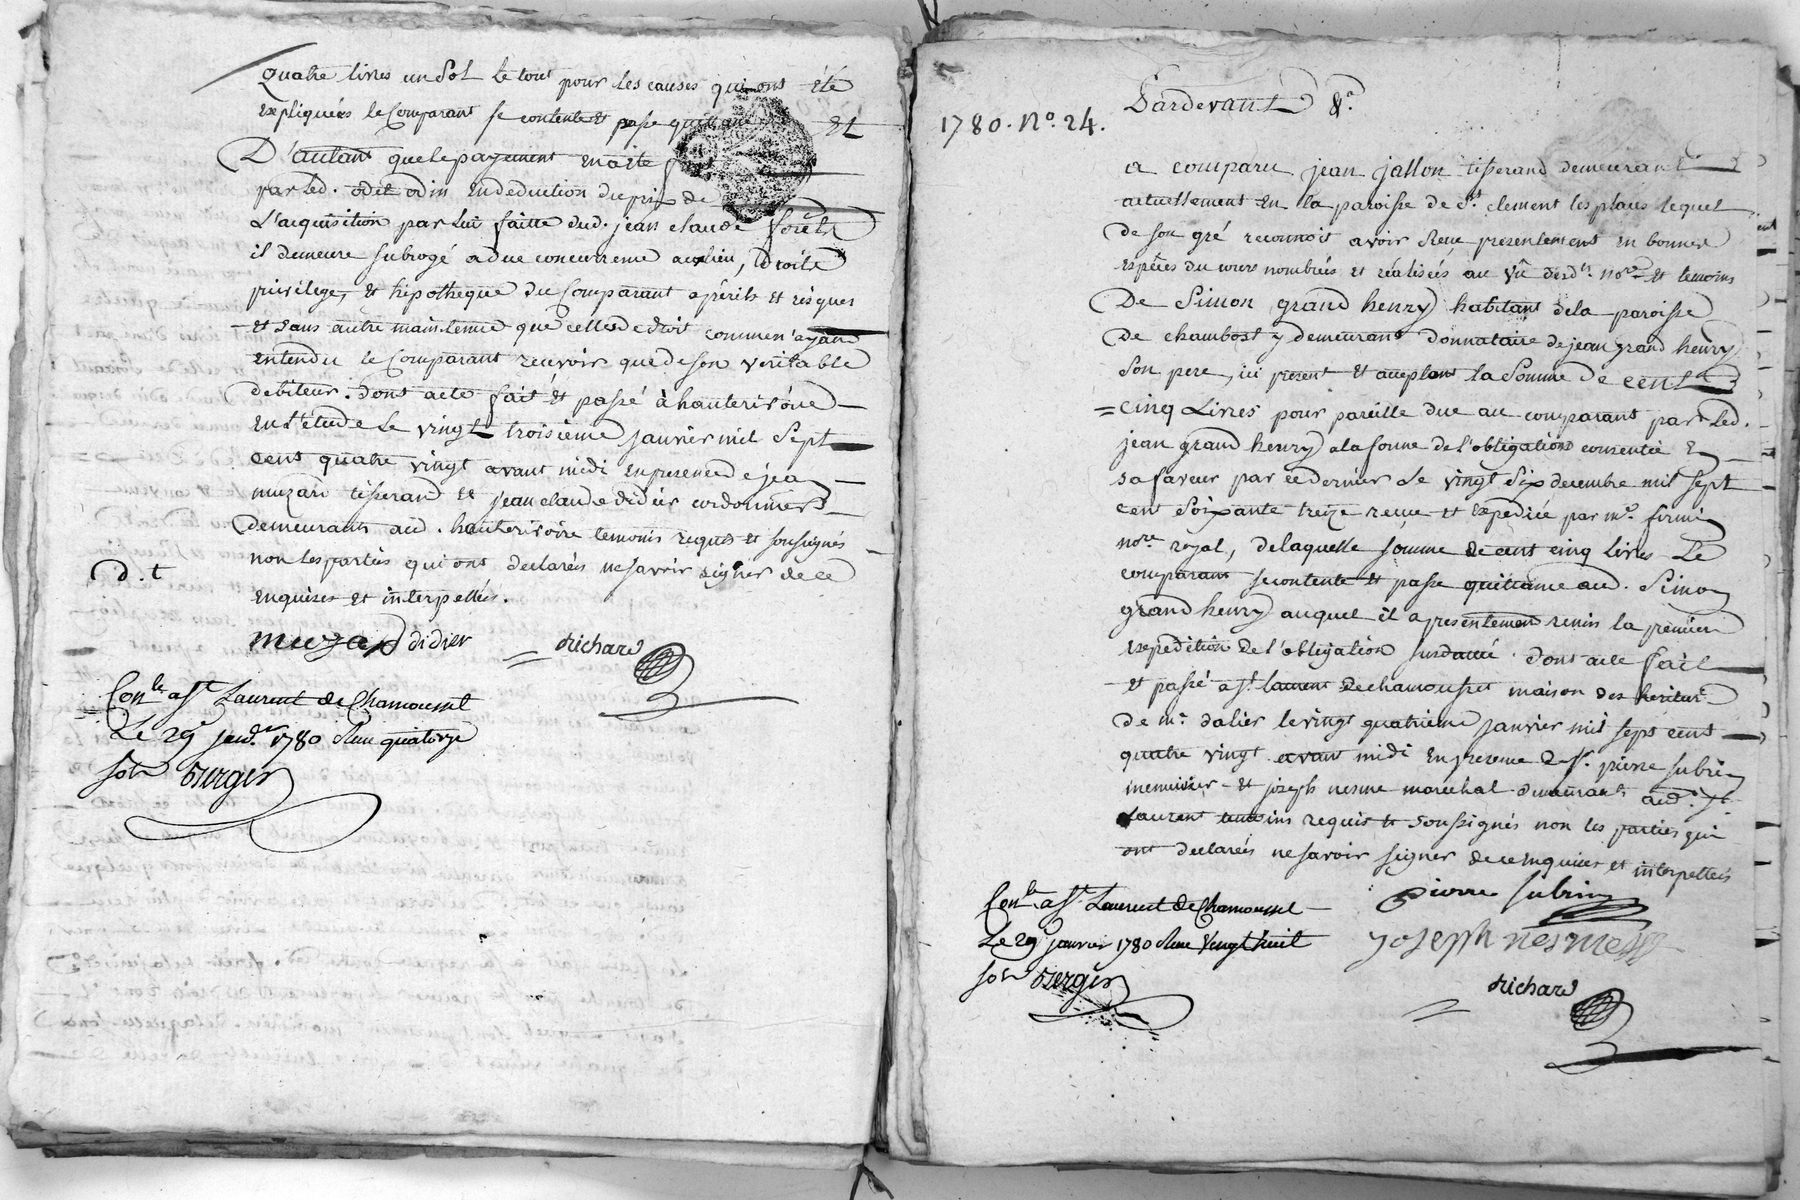 quatre livres un sol le tout pour les causes qui ont été
expliquées le comparant se contente et passe quittance Et
D'autant que le payement
par led. odet odin en deduction du prix de
L'acquisition par lui faitte dud. jean claude
il demeure subrogé a due concurrence au lieu, Droits
privilege, et hipotheque du comparant a périls et risques
et sans autre maintenue que celles de droit comme n'ayant
entendu le comparant recevoir que de son veritable
debiteur. dont acte fait et passé à hauterivoire
en l'etude le vingt troisieme janvier mil sept
cent quatre vingt avant midi en presence de jean
muzard tisserand et jean claude didier cordonniers
demeurants aud. hauterivoire temoins requis et soussignés
non les parties qui ont declarées ne savoir signer de ce
d. t
enquises et interpellées.
muzard didier Richard
Con.le a St Laurent de Chamousset
Le 29 janv.r 1780 Reçu quatorze
sols Berger
Pardevant &c.
1780. No. 24.
a comparu jean jallon tisserand demeurant
actuellement en la paroisse de St. clement les places lequel
de son gré reconnoit avoir Reçu presentement en bonnes
espéces du cours nombrées et réalisées au vû desd.ts no.re et temoins
De Simon grand henry habitant de la paroisse
de chambost y demeurant donnataire de jean grand henry
son pere, ici present et acceptant la somme de cent
cinq Livres pour pareille due au comparant par led.
jean grand henry a la forme de l'obligation consentie En
sa faveur par ce dernier le vingt six decembre mil sept
cent soixante treize recue et expediée par m.e firmin
no.re royal, de laquelle somme de cent cinq livres Le
comparant se contente et passe quittance aud. Simon
grand henry auquel il a presentement remis la premiere
expedition de l'obligation susdattée. dont acte fait
et passé a St. laurent de chamousset maison des heritiers
de m.e dalier le vingt quatrieme janvier mil sept cent
quatre vingt avant midi en presence de Sr. pierre subrin
menuisier et joseph nesme maréchal demeurants aud. St.
Laurent temoins requis et soussignés non les parties qui
ont declarées ne savoir signer de ce enquises et interpellées
Con.le a St. Laurent de Chamousset
pierre subrin
Le 29 janvier 1780 Reçu Vingt huit
joseph nesme
sols Berger
Richard